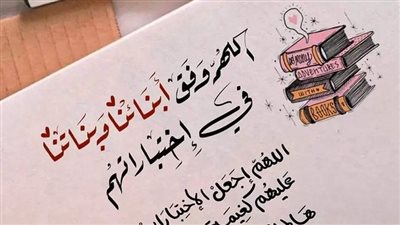 اللهم وفق أبنائنا وبناتنا
في إختباراتهم
اللهم إجعل الإختبارات
عليهم
ADVENTURES
WITH
BOOKS